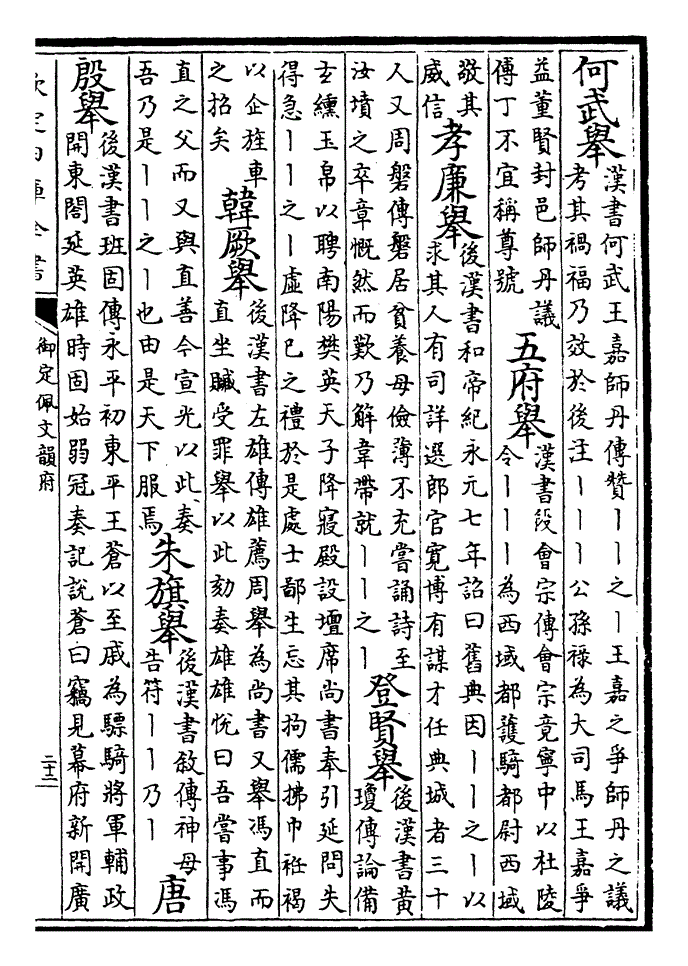 何武舉
漢書何武王嘉師丹傳贊丨丨之丨王嘉之爭師丹之議
考其禍福乃效於後注丨丨丨公孫祿為大司馬王嘉爭
益董賢封邑師丹議
傳丁不宜稱尊號
五府舉
漢書段會宗傳會宗竟寧中以杜陵
令丨丨丨為西域都護騎都尉西域
敬其
威信
孝廉舉
後漢書和帝紀永元七年詔曰舊典因丨丨之丨以
求其人有司詳選郎官寬博有謀才任典城者三十
人又周磐傳磐居貧養母儉薄不充嘗誦詩至
汝墳之卒章慨然而歎乃解韋帶就丨丨之丨
登賢舉
後漢書黃
瓊傳論備
玄纁玉帛以聘南陽樊英天子降寢殿設壇席尚書奉引延問失
得急丨丨之丨虛降已之禮於是處士鄙生忘其拘儒拂巾衽褐
以企旌車
之招矣
韓厥舉
後漢書左雄傳雄薦周舉為尚書又舉馮直而
直坐贓受罪舉以此劾奏雄雄悅曰吾嘗事馮
直之父而又與直善今宣光以此奏
吾乃是丨丨之丨也由是天下服焉
朱旗舉
後漢書敘傳神母
告符丨丨乃丨
唐
殷舉
後漢書班固傳永平初東平王蒼以至戚為驃騎將軍輔政
開東閤延英雄時固始弱冠奏記說蒼曰竊見幕府新開廣
欽定四庫全書
御定佩文韻府
二十二